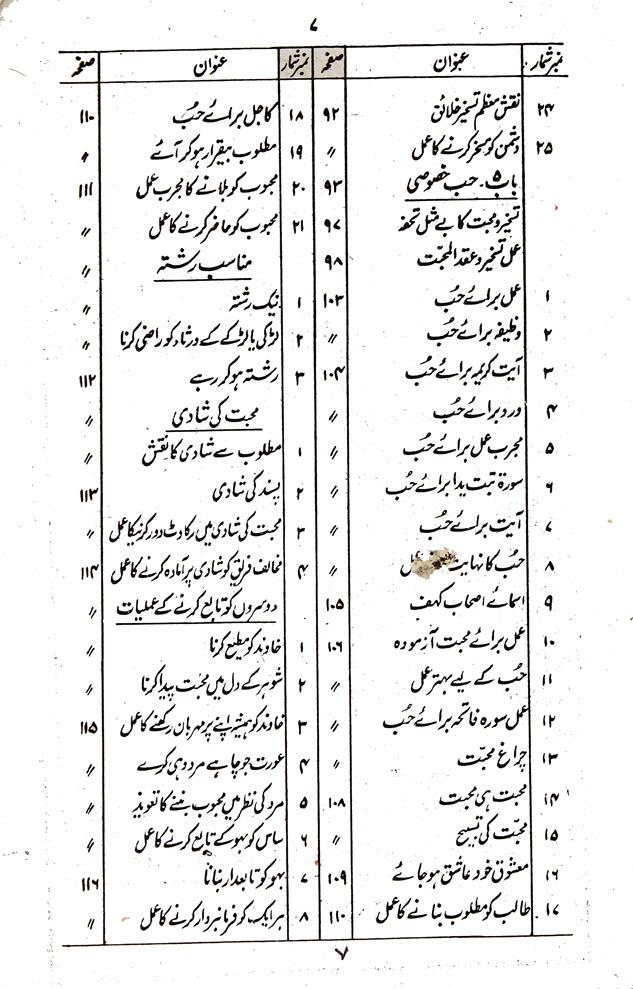 ۷
نمبر شمار عنوان صفحہ
۲۴ نقش معظم تسخیر خلائق ۹۲
۲۵ دشمن کو مسخر کرنے کا عمل 〃
باب ۵۔ حب خصوصی ۹۳
تسخیر و محبت کا بے مثل تحفہ ۹۷
عمل تسخیر و عقد المحبت ۹۸
۱ عمل برائے حُب ۱۰۳
۲ وظیفہ برائے حُب 〃
۳ آیت کریمہ برائے حُب ۱۰۴
۴ ورد برائے حُب 〃
۵ مجرب عمل برائے حُب 〃
۶ سورۃ تبت یدا برائے حُب 〃
۷ آیت برائے حُب 〃
۸ حُب کا نہایت 〃
۹ اسمائے اصحاب کہف ۱۰۵
۱۰ عمل برائے محبت آزمودہ ۱۰۶
۱۱ حُب کے لیے بہتر عمل 〃
۱۲ عمل سورہ فاتحہ برائے حُب 〃
۱۳ چراغ محبّت 〃
۱۴ محبت ہی محبت ۱۰۸
۱۵ محبّت کی تسبیح 〃
۱۶ معشوق خود عاشق ہو جائے ۱۰۹
۱۷ طالب کو مطلوب بنانے کا عمل ۱۱۰
نمبر شمار عنوان صفحہ
۱۸ کاجل برائے حُب ۱۱۰
۱۹ مطلوب بیقرار ہو کر آئے 〃
۲۰ محبوب کو بلانے کا مجرب عمل ۱۱۱
۲۱ محبوب کو حاضر کرنے کا عمل 〃
مناسب رشتہ 〃
۱ نیک رشتہ 〃
۲ لڑکی یا لڑکے کے ورثاء کو راضی کرنا 〃
۳ رشتہ ہو کر رہے ۱۱۲
محبت کی شادی 〃
۱ مطلوب سے شادی کا نقش 〃
۲ پسند کی شادی ۱۱۳
۳ محبت کی شادی میں رکاوٹ دور کرنیکا عمل 〃
۴ مخالف فریق کو شادی پر آمادہ کرنے کا عمل ۱۱۴
دوسروں کو تابع کرنے کے عملیات 〃
۱ خاوند کو مطیع کرنا 〃
۲ شوہر کے دل میں محبّت پیدا کرنا 〃
۳ خاوند کو ہمیشہ اپنے پر مہربان رکھنے کا عمل ۱۱۵
۴ عورت جو چاہے مرد وہی کرے 〃
۵ مرد کی نظر میں محبوب بننے کا تعویذ 〃
۶ ساس کو بہو کے تابع کرنے کا عمل 〃
۷ بہو کو تابعدار بنانا ۱۱۶
۸ ہر ایک کو فرمانبردار کرنے کا عمل 〃
۷